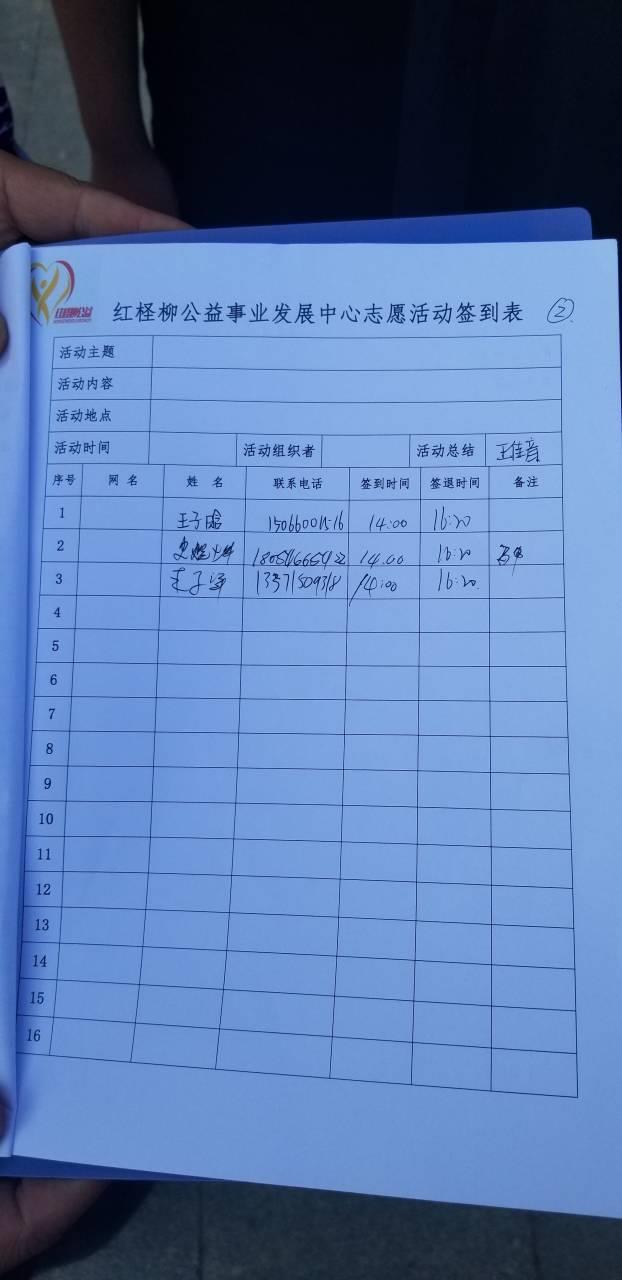 红柽柳公益事业发展中心志愿活动签到表 ②
活动主题
活动内容
活动地点
活动时间 活动组织者 活动总结 王佳音
序号 网名 姓名 联系电话 签到时间 签退时间 备注
1 14:00 16:20
2 14.00 16:20
3 14:00 16:20.
4
5
6
7
8
9
10
11
12
13
14
15
16